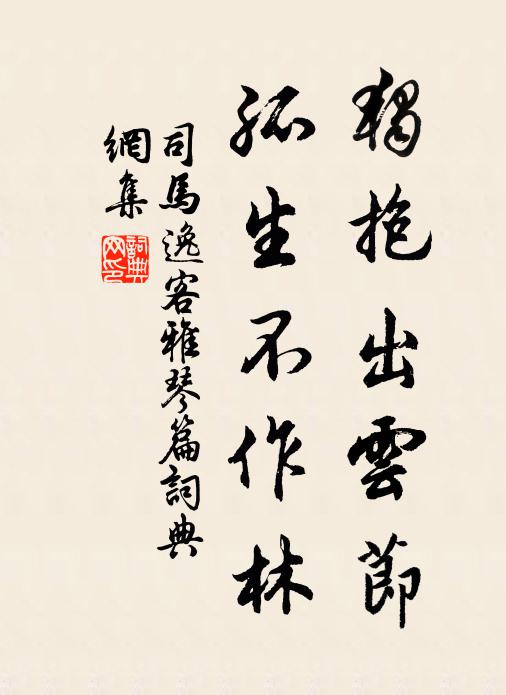 獨抱出雲節
孤生不作林
司馬逸客雅琴篇詞典
網集
詞典
网印